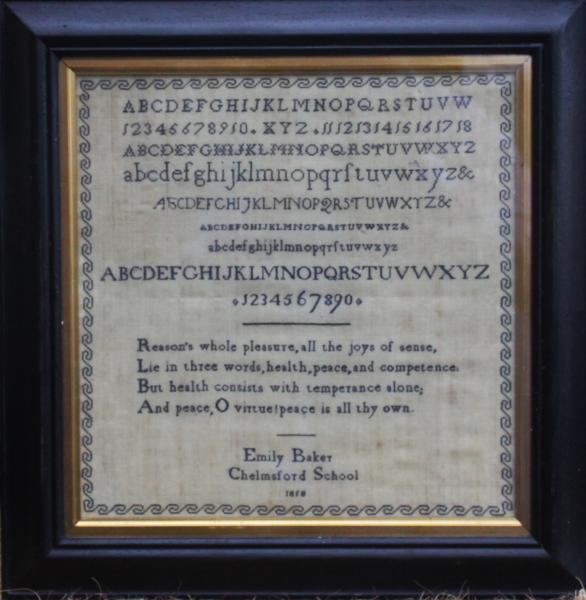 ABCDEFGHIJKLMNOPQRSTUVW
12345678910. XYZ .1112131415161718
ABCDEFGHIJKLMNOPQRSTUVWXYZ
abcdefghijklmnopqrſtuvwxyz&
ABCDEFGHIJKLMNOPQRSTUVWXYZ&
ABCDEFGHIJKLMNOPQRSTUVWXYZ&
abcdefghijklmnopqrſtuvwxyz
ABCDEFGHIJKLMNOPQRSTUVWXYZ
1234567890
Reason's whole pleasure, all the joys of sense,
Lie in three words, health, peace, and competence.
But health consists with temperance alone;
And peace, O virtue! peace is all thy own.
Emily Baker
Chelmsford School
1858